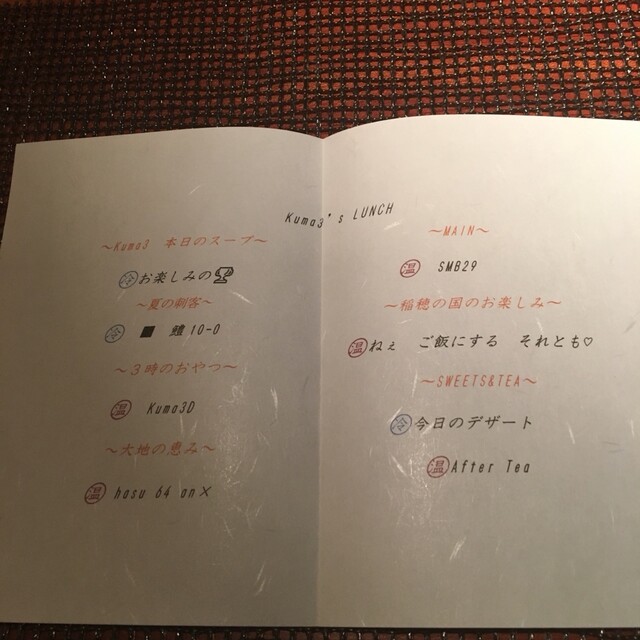 Kuma3's LUNCH
～Kuma3 本日のスープ～
冷 お楽しみの🏆
～夏の刺客～
冷 ■ 鱧10-0
～3時のおやつ～
温 Kuma3D
～大地の恵み～
温 hasu 64 an×
～MAIN～
温 SMB29
～稲穂の国のお楽しみ～
温 ねぇ ご飯にする それとも♡
～SWEETS&TEA～
冷 今日のデザート
温 After Tea